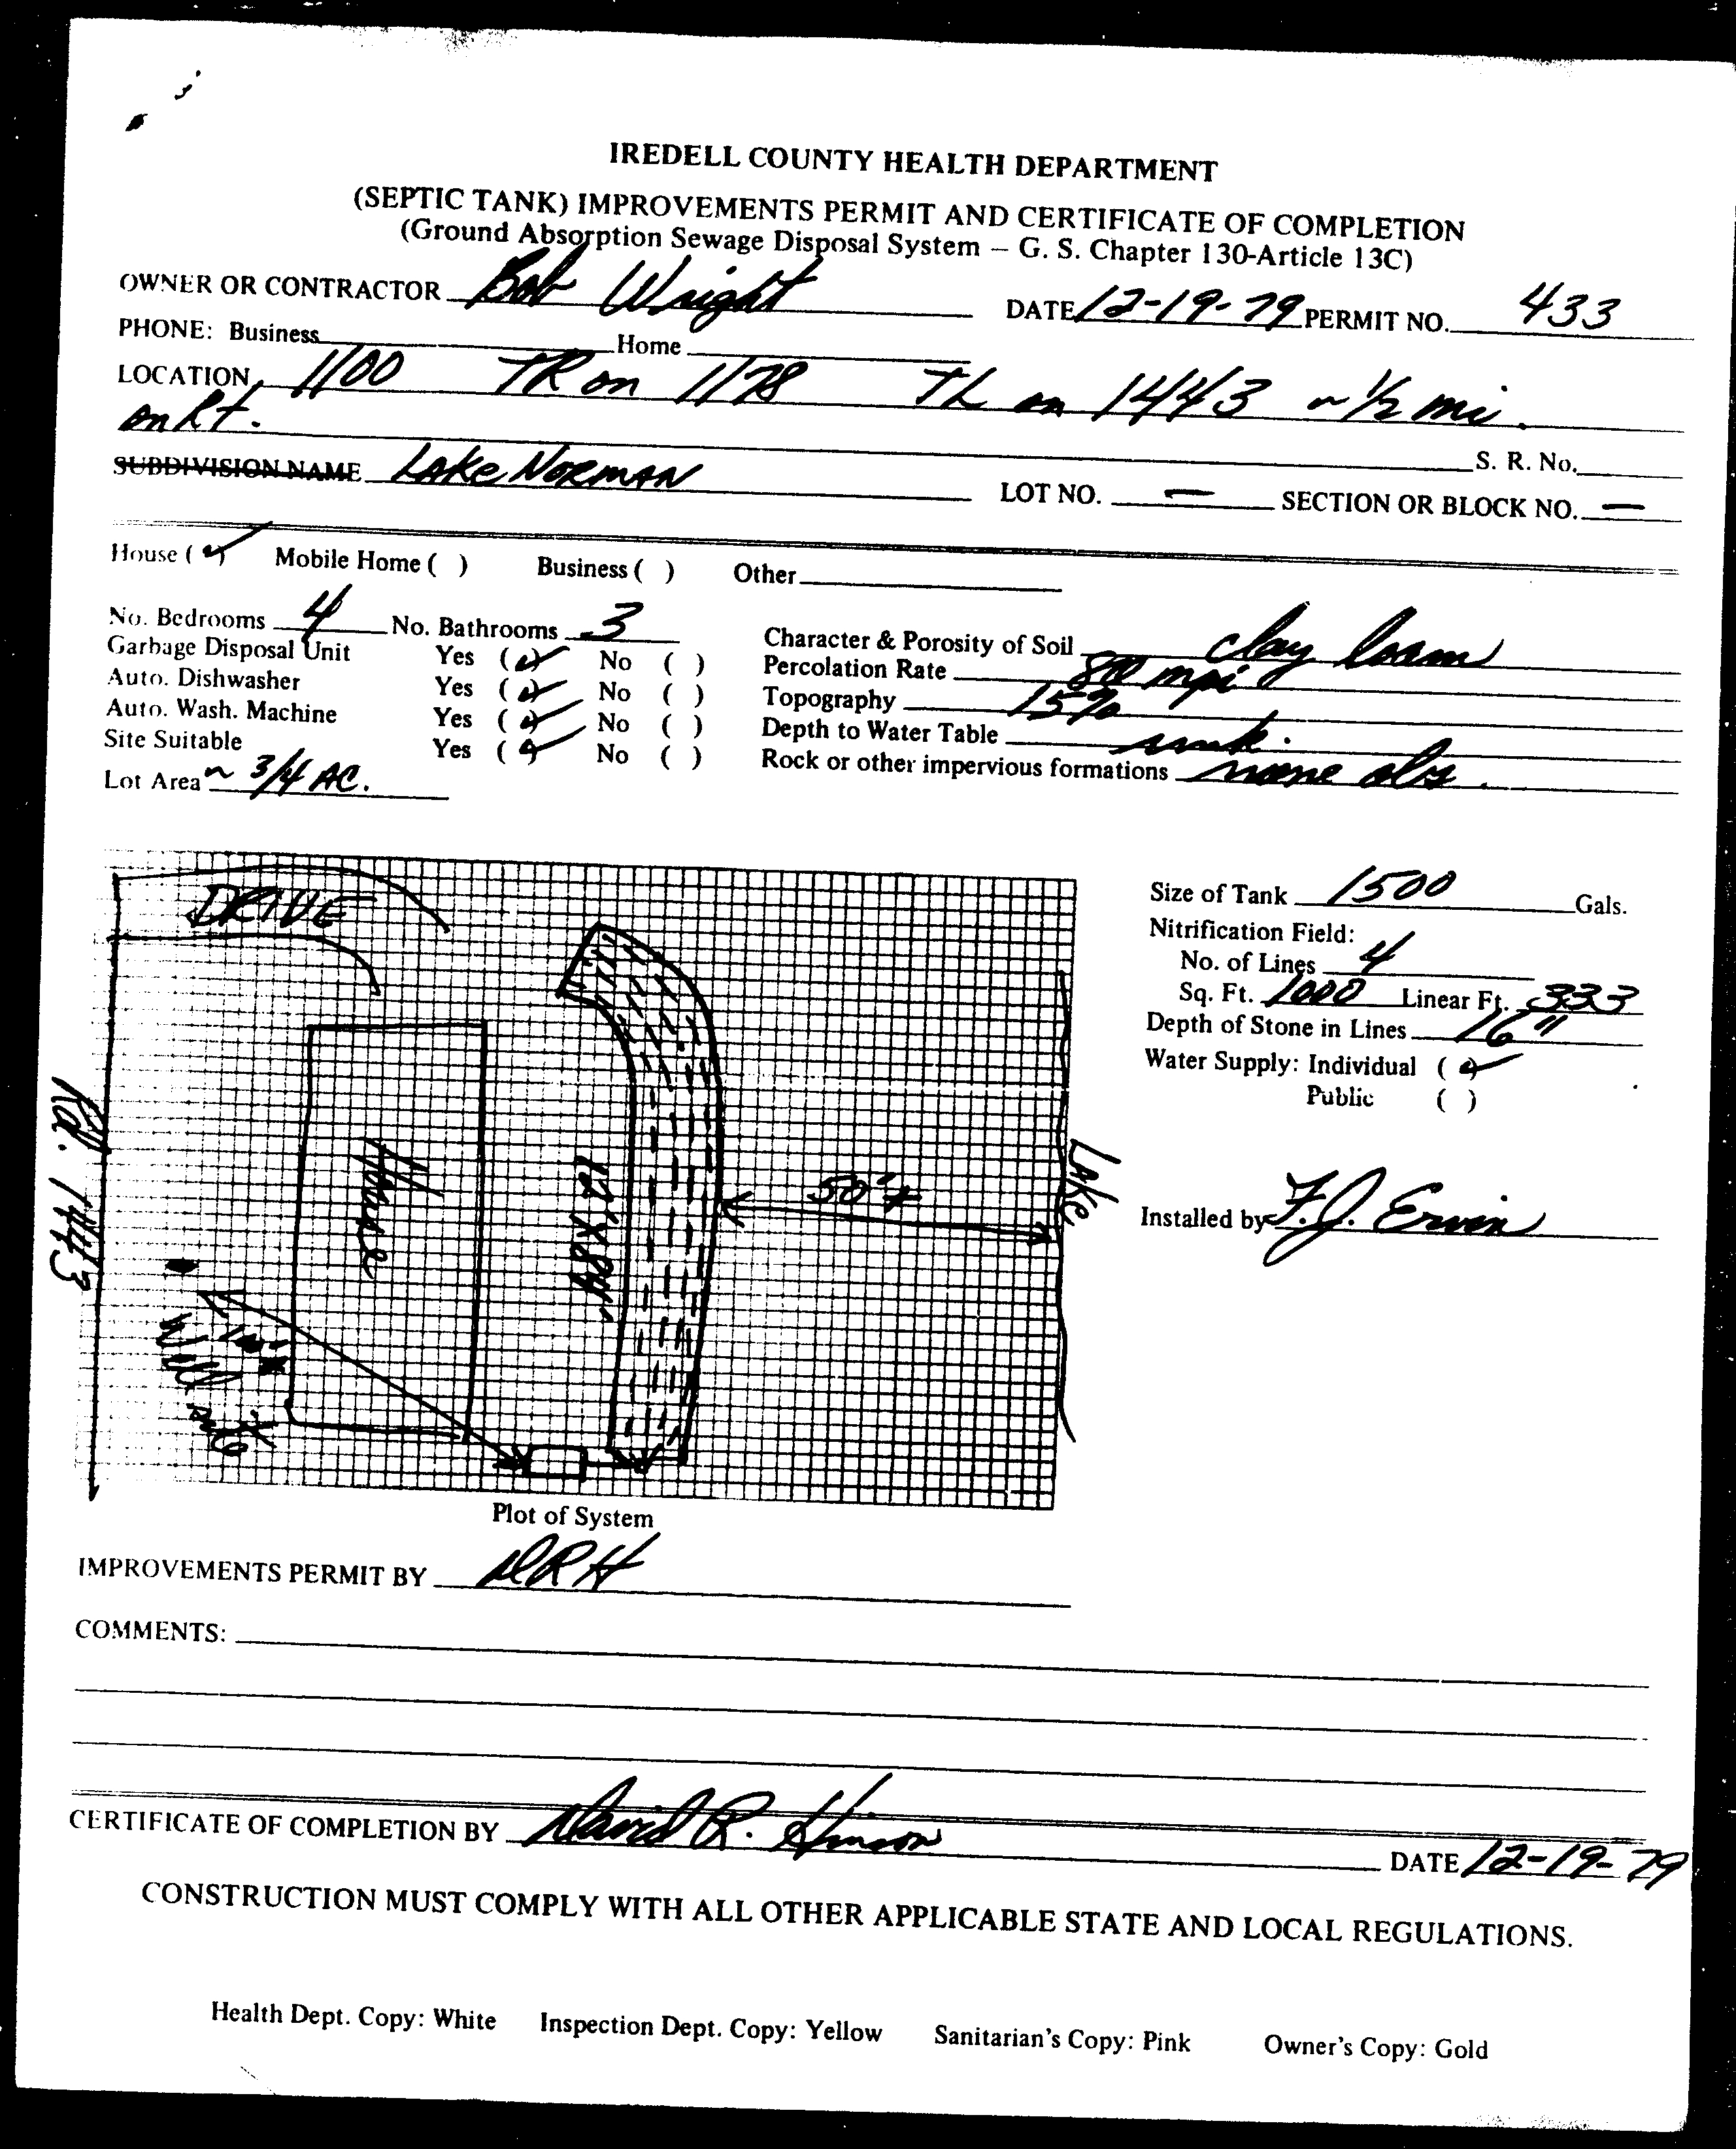 IREDELL COUNTY HEALTH DEPARTMENT
(SEPTIC TANK) IMPROVEMENTS PERMIT AND CERTIFICATE OF COMPLETION
(Ground Absorption Sewage Disposal System – G. S. Chapter 130-Article 13C)
OWNER OR CONTRACTOR Bob Wright DATE 12-19-79 PERMIT NO. 433
PHONE: Business Home
LOCATION 1100 TR on 1178 TL on 1443 ~ 1/2 mi.
on Rt.
S. R. No.
SUBDIVISION NAME Lake Norman LOT NO. — SECTION OR BLOCK NO. —
House (✓) Mobile Home ( ) Business ( ) Other
No. Bedrooms 4 No. Bathrooms 3 Character & Porosity of Soil clay loam
Garbage Disposal Unit Yes (✓) No ( ) Percolation Rate mpi
Auto. Dishwasher Yes (✓) No ( ) Topography 15%
Auto. Wash. Machine Yes (✓) No ( ) Depth to Water Table unk.
Site Suitable Yes (✓) No ( ) Rock or other impervious formations none obs.
Lot Area ~ 3/4 AC.
DRIVE
Size of Tank 1500 Gals.
Nitrification Field:
No. of Lines 4
Sq. Ft. 1000 Linear Ft. 333
Depth of Stone in Lines 16"
Water Supply: Individual (✓)
Public ( )
Rd. 1443
House
12'X84'
50'±
Lake
Installed by F.J. Ervin
Well site
Plot of System
IMPROVEMENTS PERMIT BY DRH
COMMENTS:
CERTIFICATE OF COMPLETION BY David R. Hinson DATE 12-19-79
CONSTRUCTION MUST COMPLY WITH ALL OTHER APPLICABLE STATE AND LOCAL REGULATIONS.
Health Dept. Copy: White Inspection Dept. Copy: Yellow Sanitarian's Copy: Pink Owner's Copy: Gold